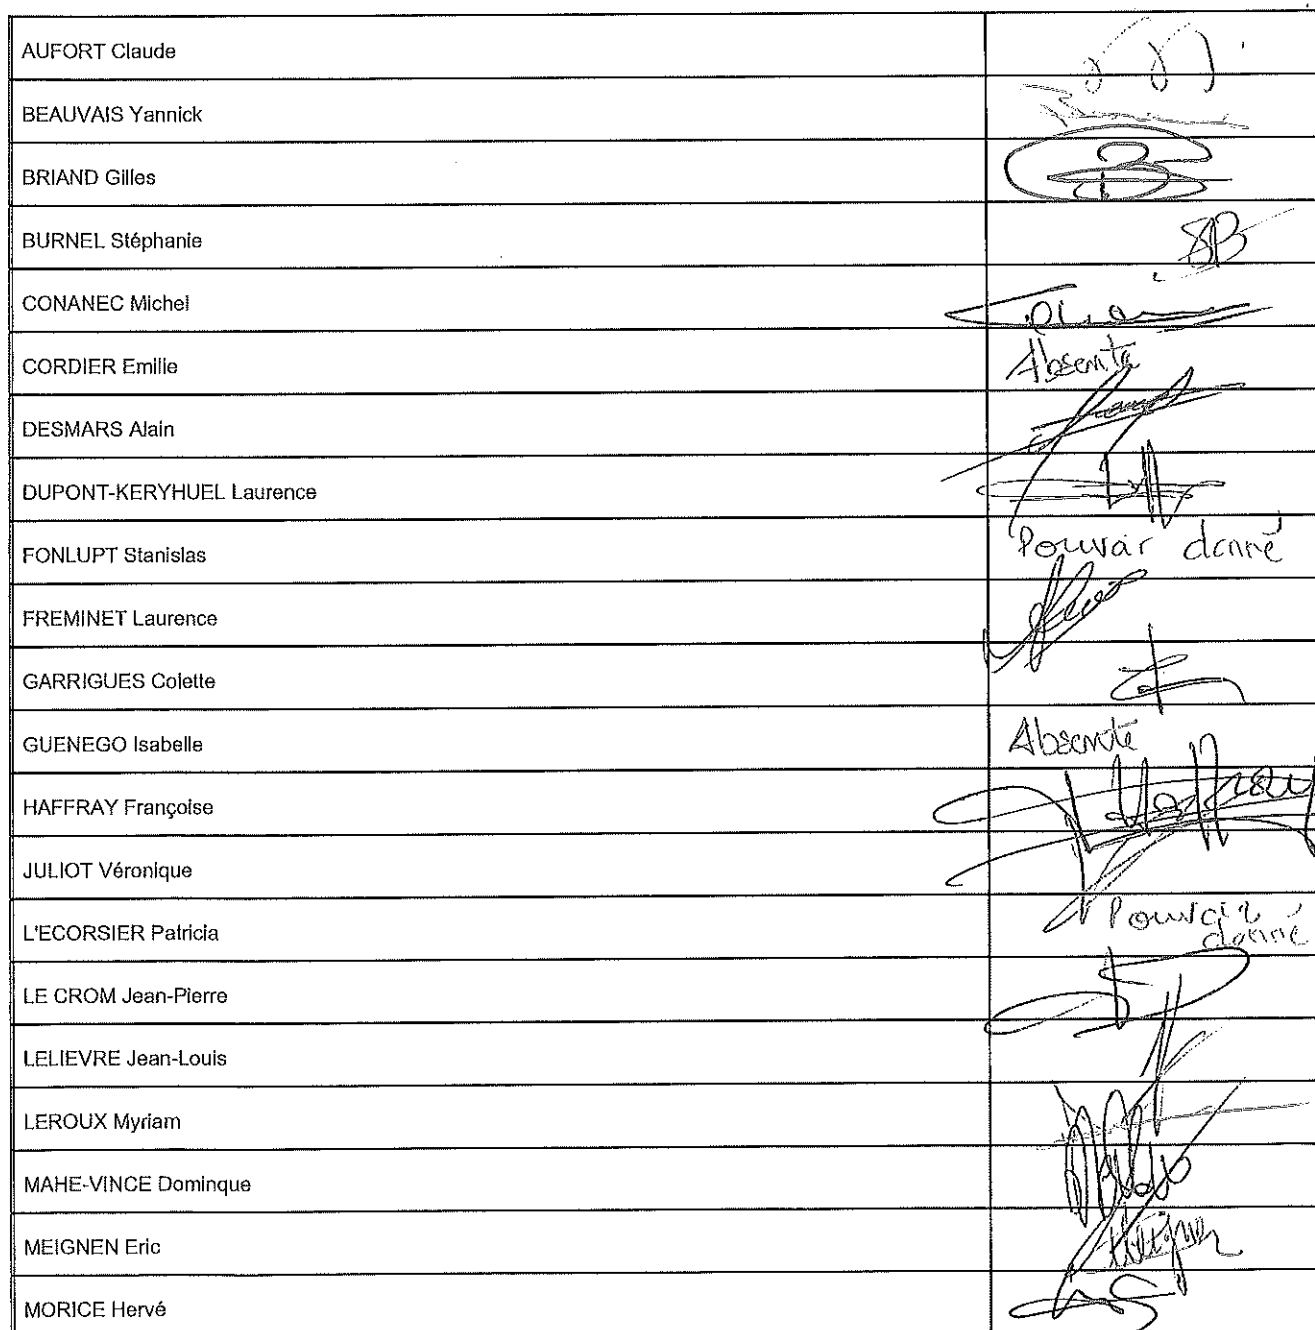 AUFORT Claude
BEAUVAIS Yannick
BRIAND Gilles
BURNEL Stéphanie
SB
CONANEC Michel
CORDIER Emilie
Absente
DESMARS Alain
DUPONT-KERYHUEL Laurence
FONLUPT Stanislas
Pouvoir donné
FREMINET Laurence
GARRIGUES Colette
GUENEGO Isabelle
Absente
HAFFRAY Françoise
Haffray
JULIOT Véronique
L'ECORSIER Patricia
Pouvoir
donné
LE CROM Jean-Pierre
LELIEVRE Jean-Louis
LEROUX Myriam
MAHE-VINCE Dominque
MEIGNEN Eric
Meignen
MORICE Hervé